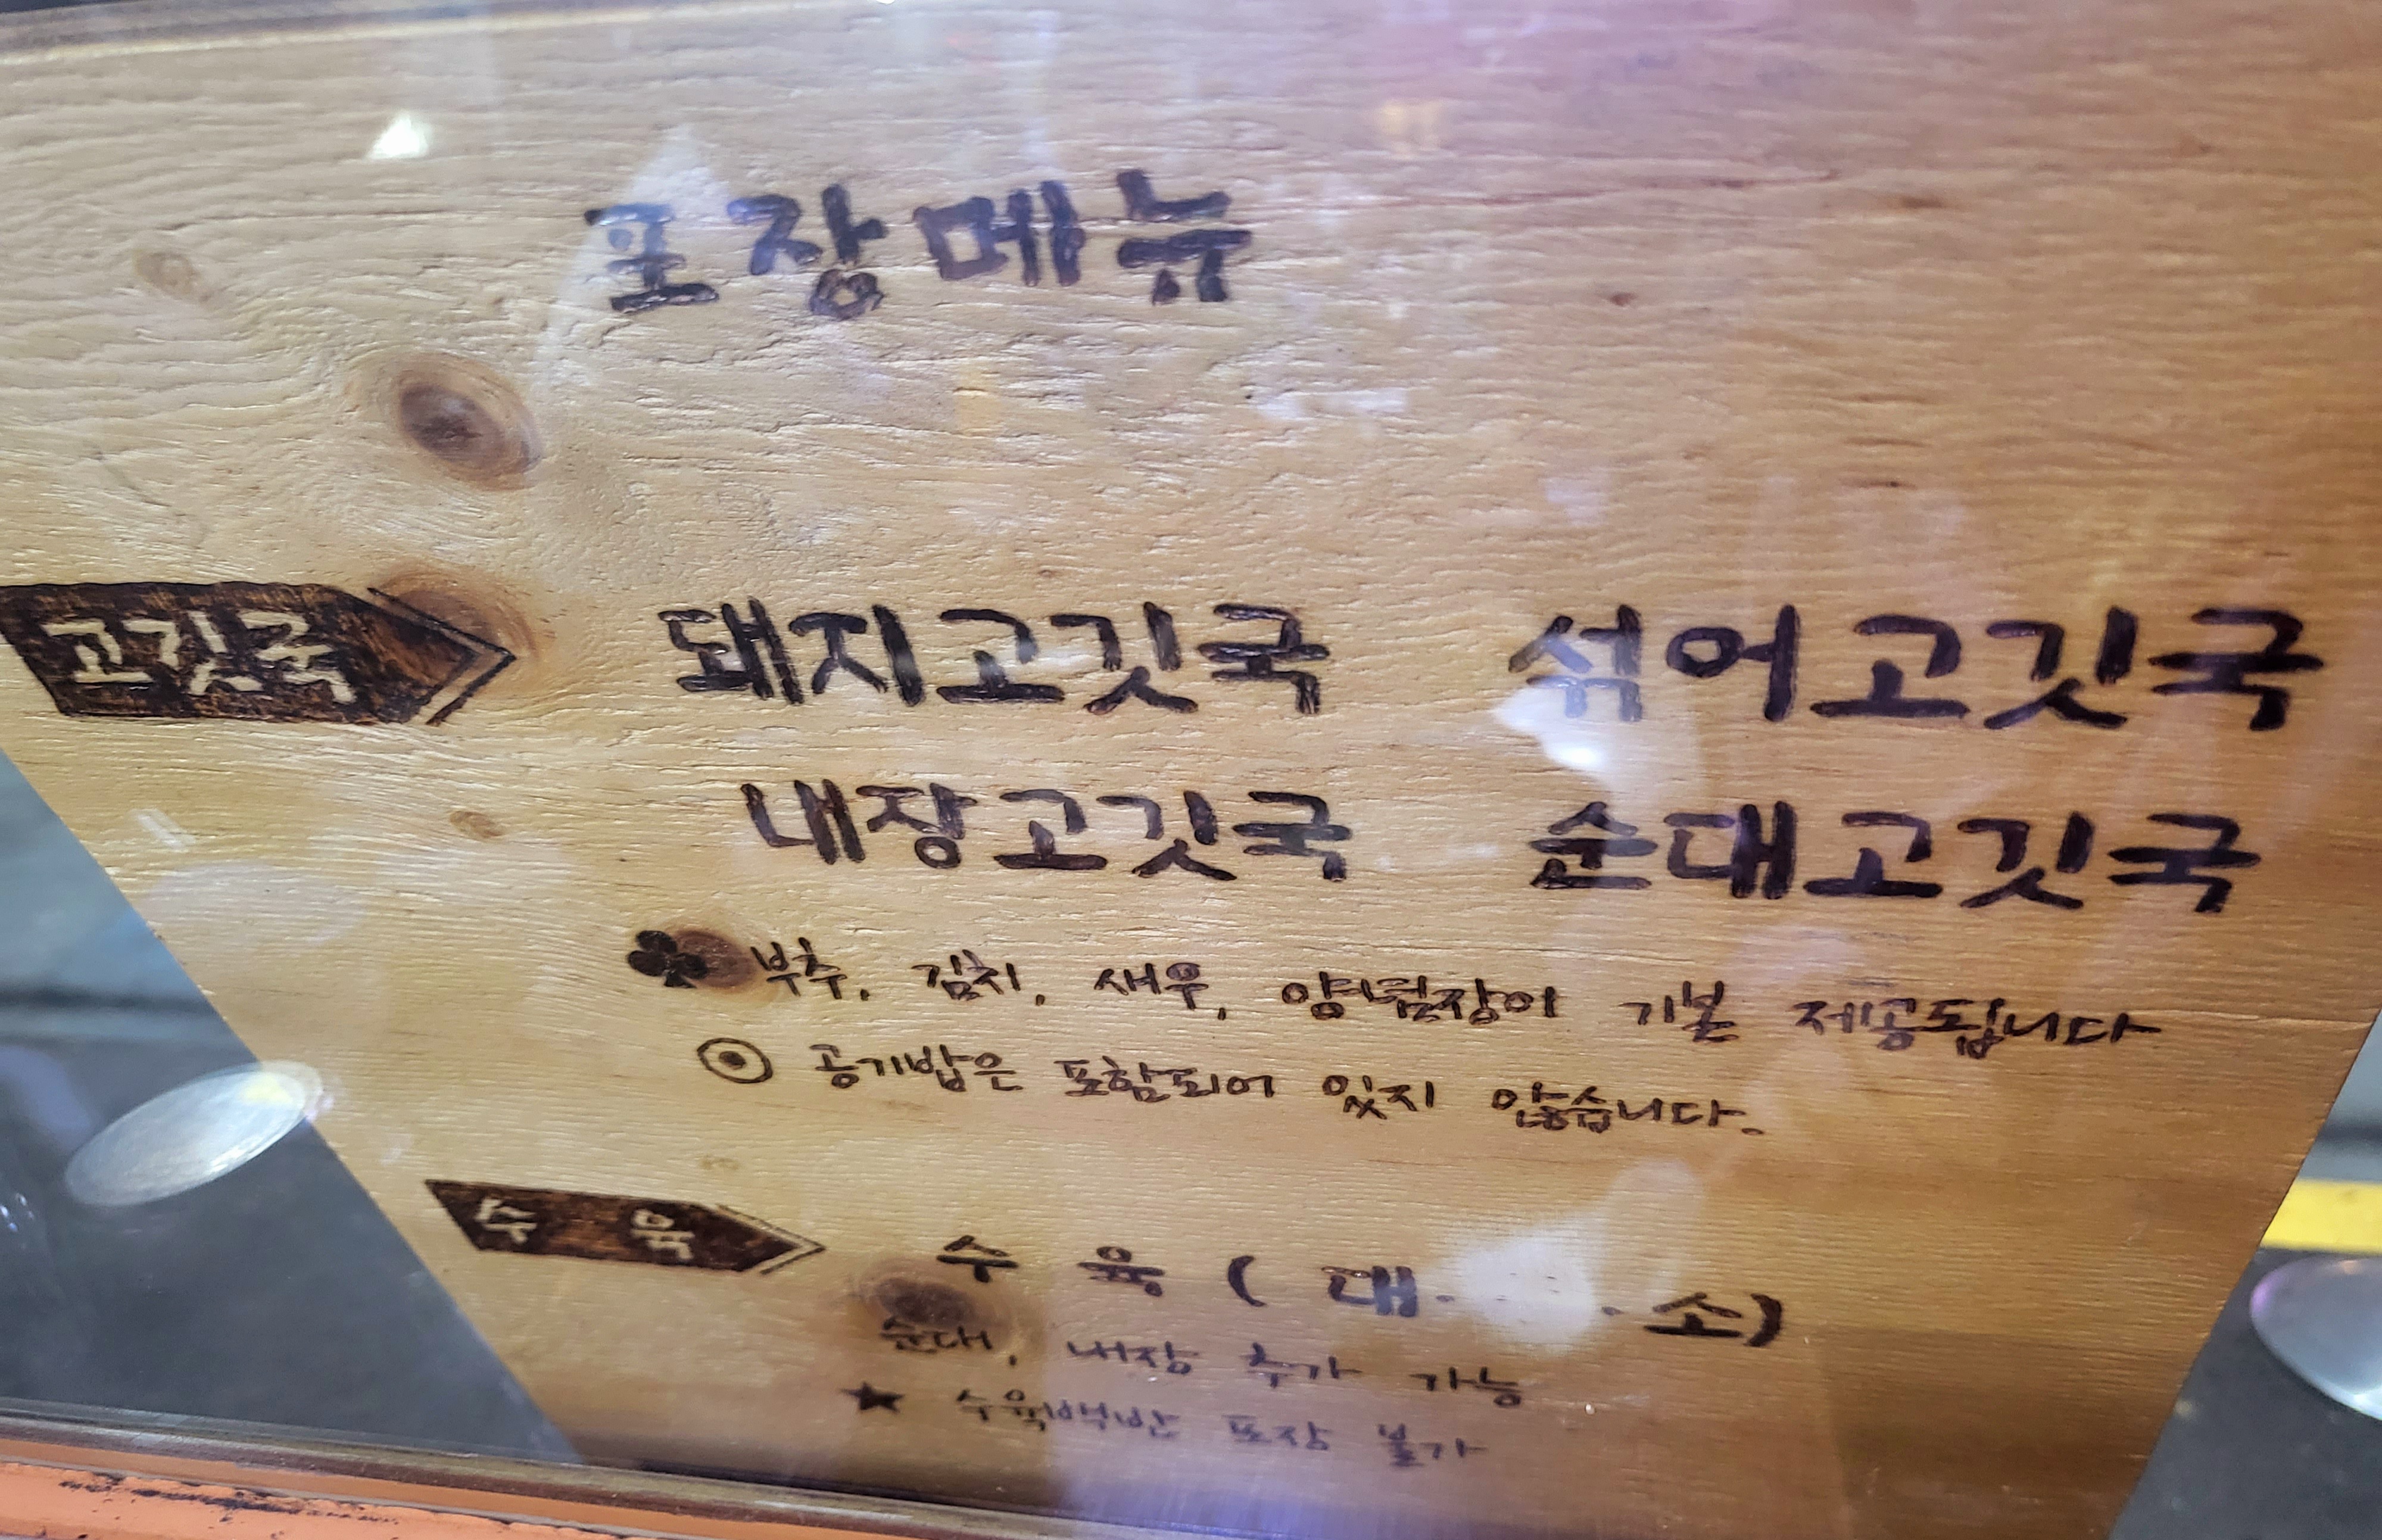 포장메뉴
고깃국 돼지고깃국 섞어고깃국
내장고깃국 순대고깃국
♣ 부추, 김치, 새우, 양념장이 기본 제공됩니다
⊙ 공기밥은 포함되어 있지 않습니다.
수 육 수 육 ( 대 · · 소)
순대, 내장 추가 가능
★ 수육백반 포장 불가